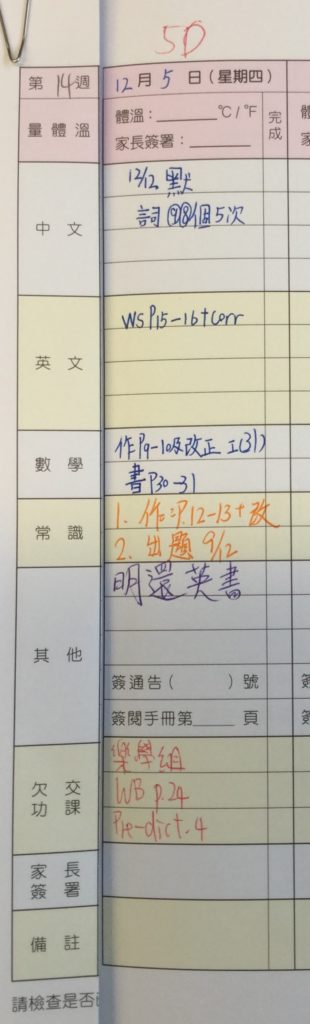 5D
第14週
12月5日(星期四)
量體溫
體溫：______°C/°F
家長簽署：______
完成
中文
12/12 默
詞⑨⑧個5次
英文
WS P.15-16+corr
數學
作P9-10及改正 工(31)
書P30-31
常識
1. 作：P.12-13+改
2. 出題 9/12
其他
明還英書
簽通告（　　）號
簽閱手冊第____頁
欠交功課
樂學組
WB p.24
Pre-dict. 4
家長簽署
備註
請檢查是否